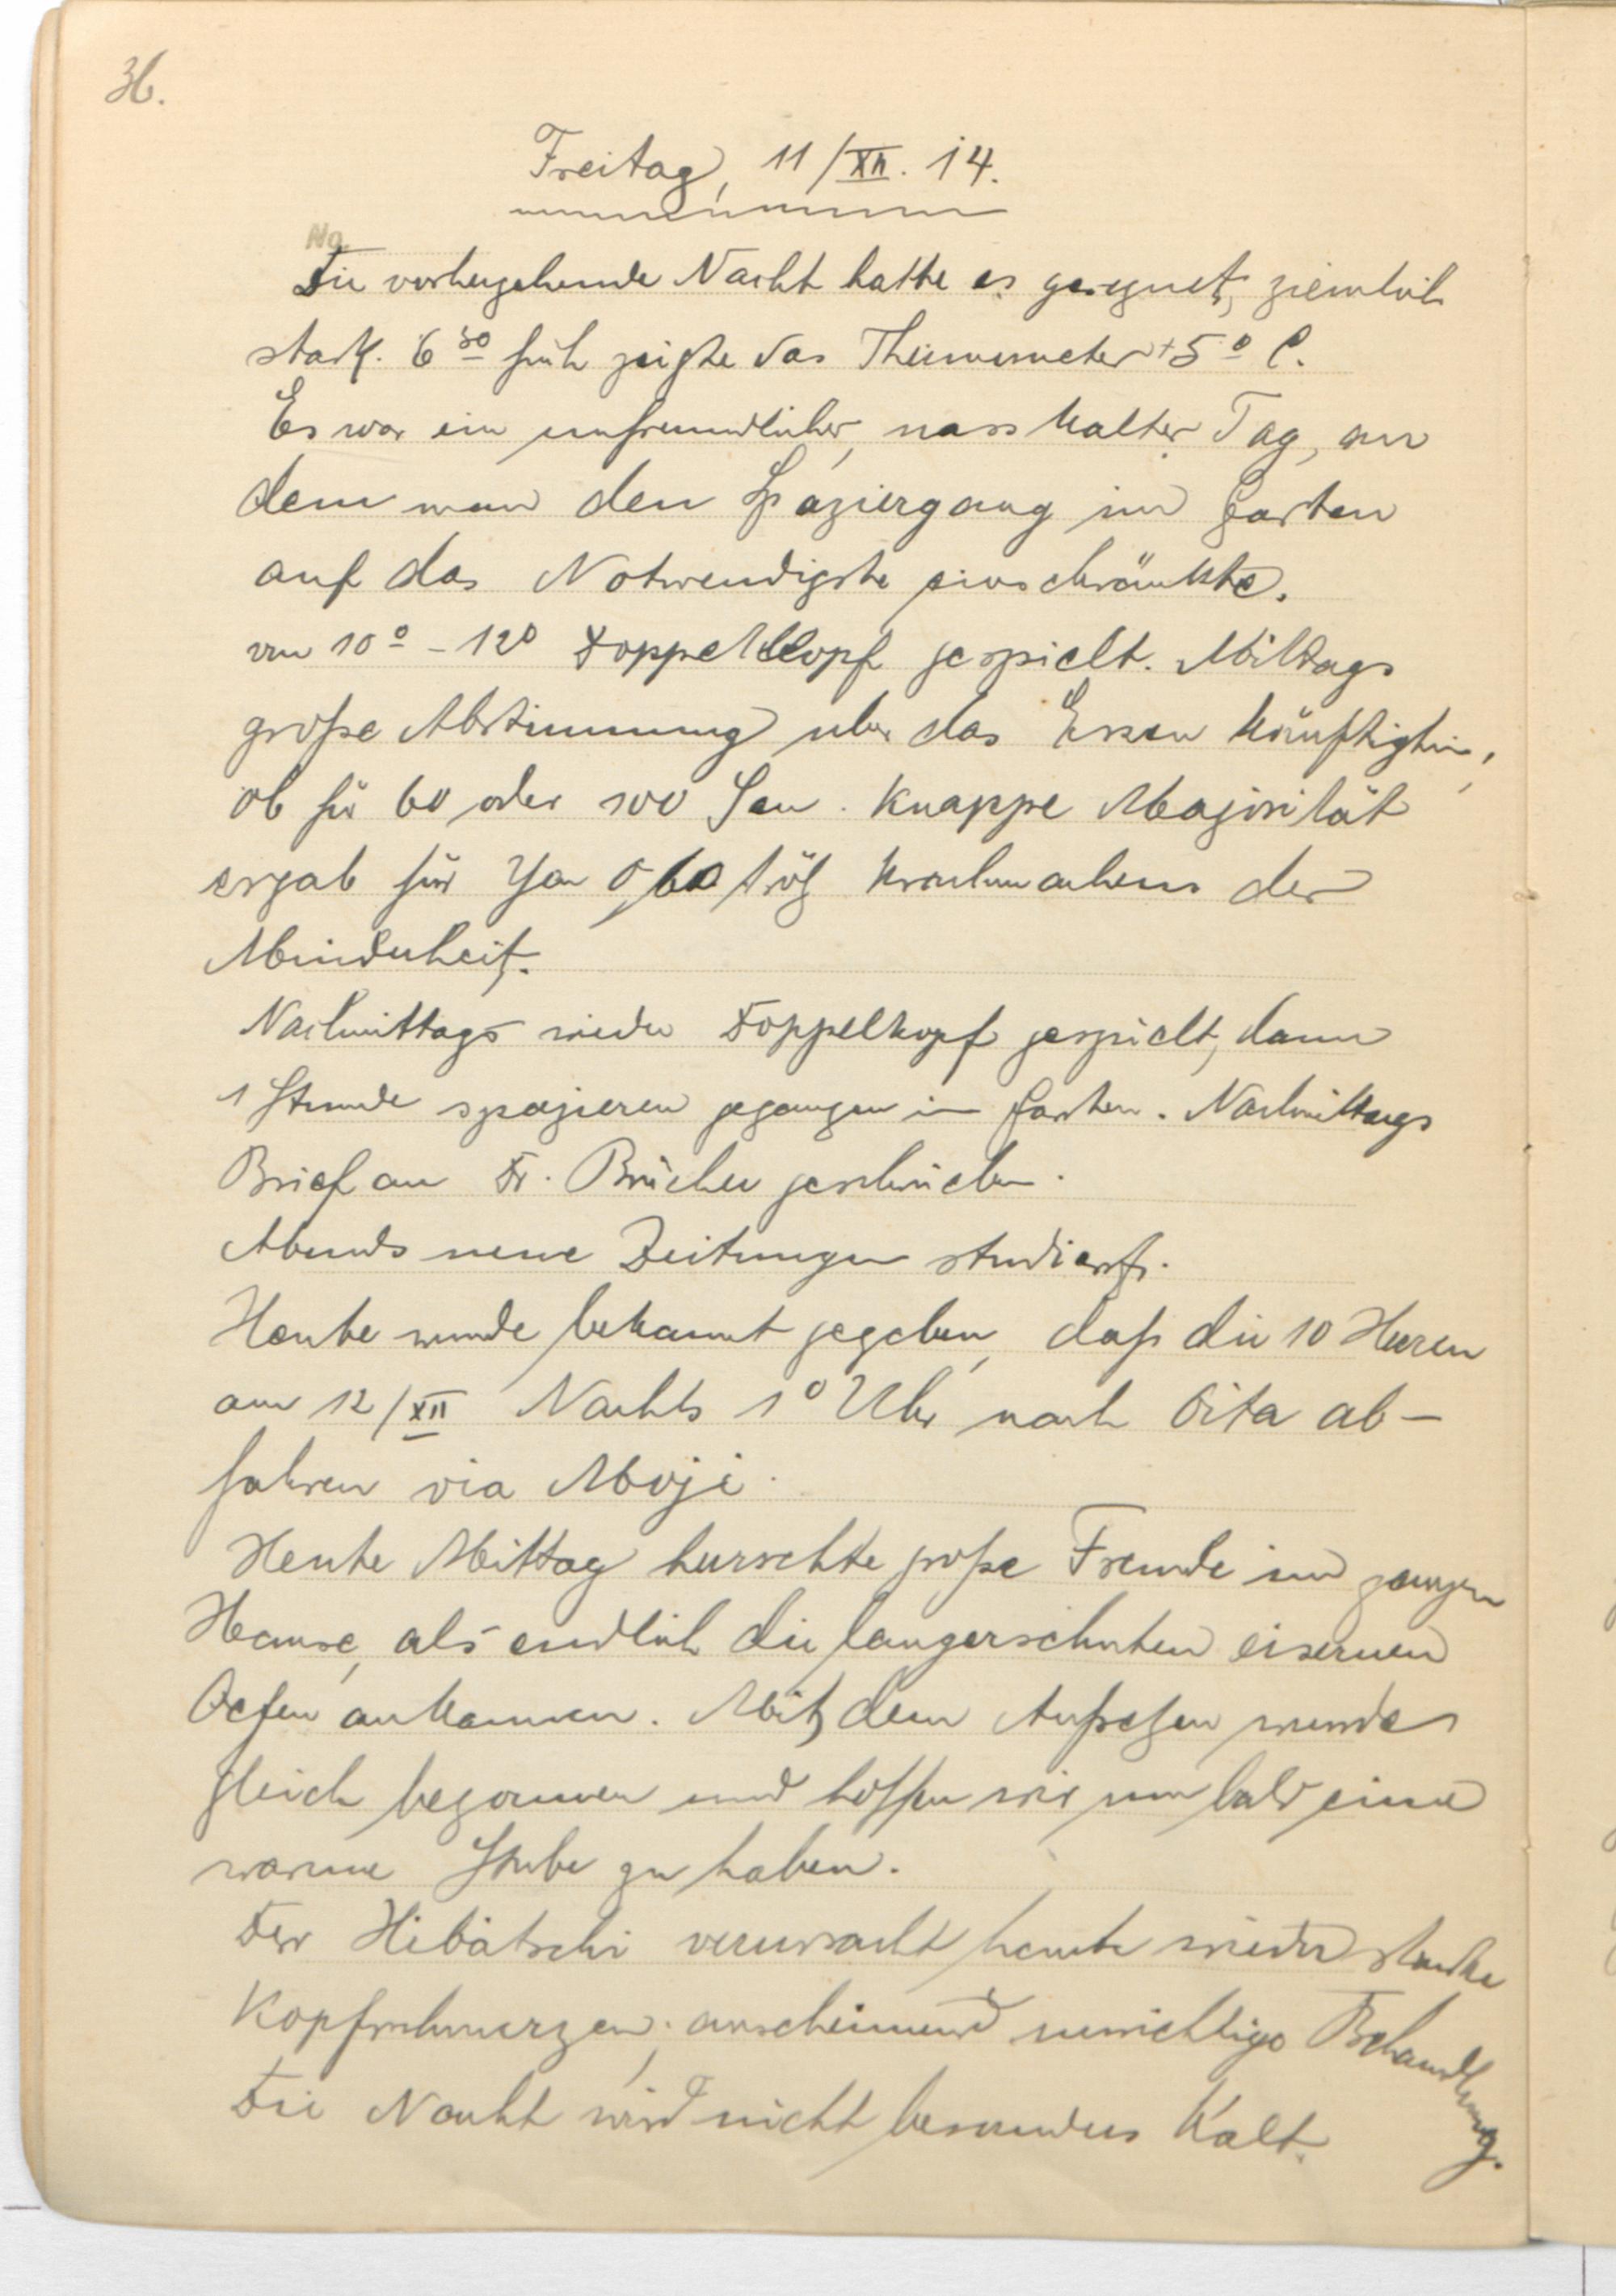 36.
Freitag, 11/XII. 14.
No.
Die vorhergehende Nacht hatte es geregnet, ziemlich
stark. 6 30 früh zeigte das Thermometer +5° C.
Es war ein unfreundlicher, nass kalter Tag, an
dem man den Spaziergang im Garten
auf das Notwendigste einschränkte.
von 10° - 12° Doppelkopf gespielt. Mittags
große Abstimmung über das Essen künftighin,
ob für 60 oder 100 Sen. Knappe Majorität
ergab für Yen 0,60 trotz Krachmachens der
Minderheit.
Nachmittags wieder Doppelkopf gespielt, dann
1 Stunde spazieren gegangen im Garten. Nachmittags
Brief an Fr. geschrieben.
Abends neue Zeitungen studiert.
Heute wurde bekannt gegeben, daß die 10 Herren
am 12/XII Nachts 1° Uhr nach Oita ab-
fahren via Moji.
Heute Mittag herrschte große Freude im ganzen
Hause, als endlich die langersehnten eisernen
Oefen ankamen. Mit dem Aufsetzen wurde
gleich begonnen und hoffen wir nun bald eine
warme Stube zu haben.
Der Hibatschi verursacht heute wieder starke
Kopfschmerzen; anscheinend unrichtige Behandlung.
Die Nacht wird nicht besonders kalt.